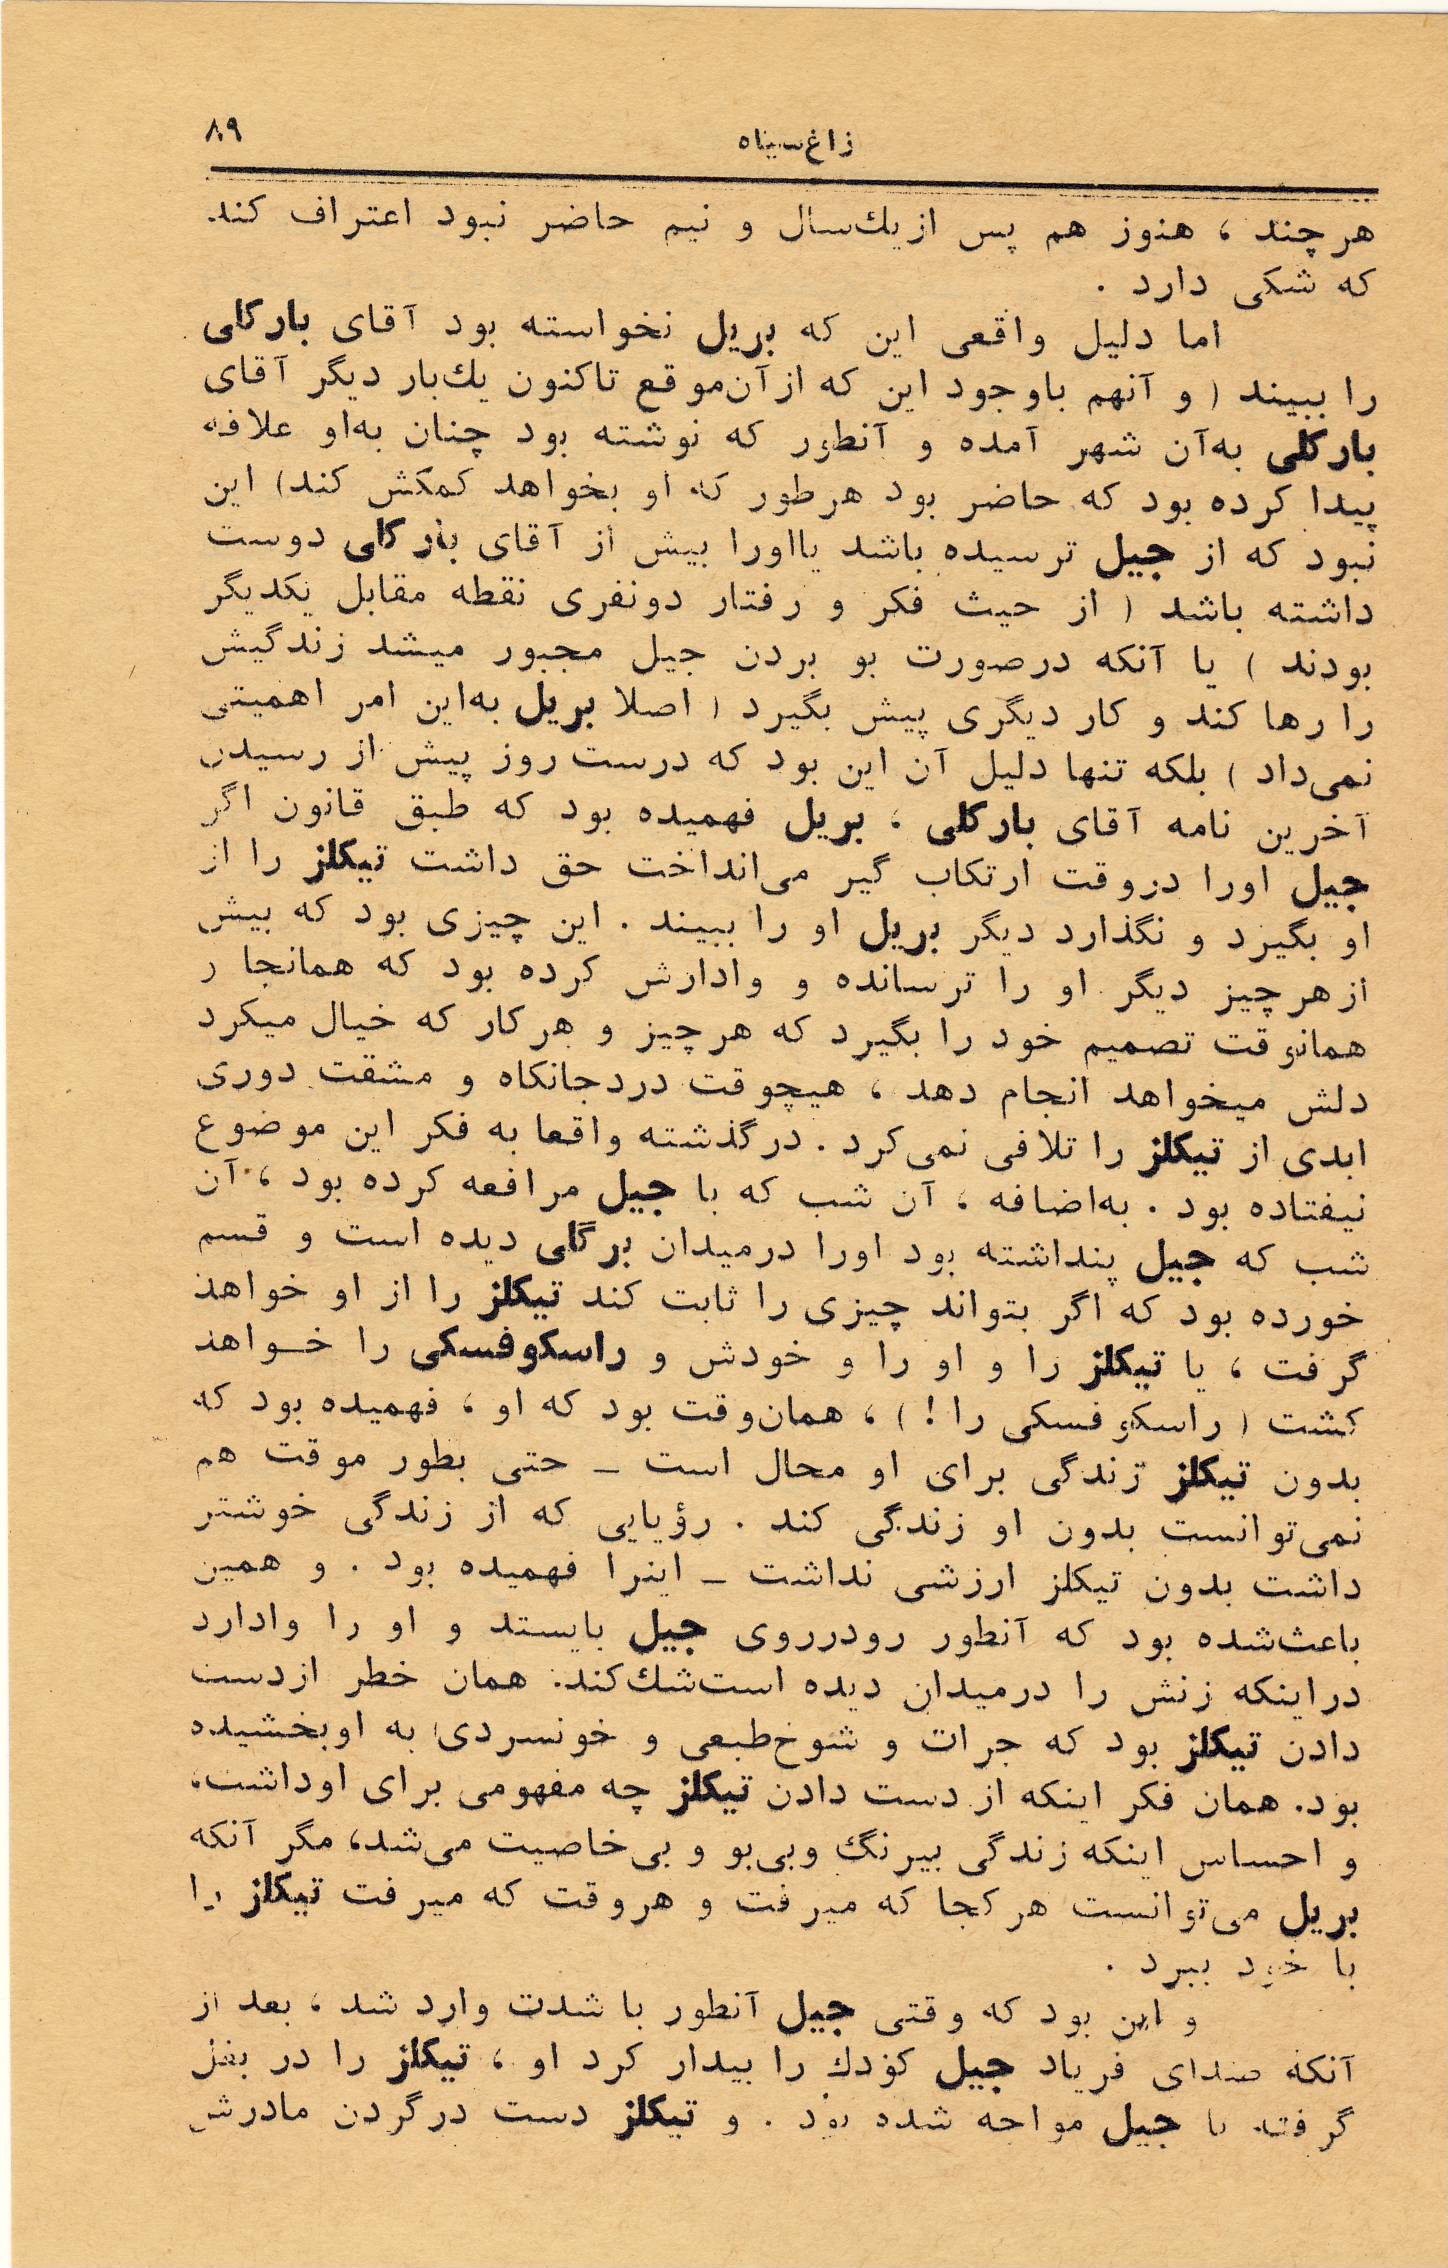 زاغ‌سیاه
۸۹
هرچند ، هنوز هم پس ازیك‌سال و نیم حاضر نبود اعتراف کند.
که شکی دارد .
اما دلیل واقعی این که بریل نخواسته بود آقای بارکلی
را ببیند ( و آنهم باوجود این که ازآن‌موقع تاکنون یك‌بار دیگر آقای
بارکلی به‌آن شهر آمده و آنطور که نوشته بود چنان به‌او علاقه
پیدا کرده بود که حاضر بود هرطور که او بخواهد کمکش کند) این
نبود که از جیل ترسیده باشد یااورا بیش از آقای بارکلی دوست
داشته باشد ( از حیث فکر و رفتار دونفری نقطه مقابل یکدیگر
بودند ) یا آنکه درصورت بو بردن جیل مجبور میشد زندگیش
را رها کند و کار دیگری پیش بگیرد ( اصلا بریل به‌این امر اهمیتی
نمی‌داد ) بلکه تنها دلیل آن این بود که درست روز پیش از رسیدن
آخرین نامه آقای بارکلی ، بریل فهمیده بود که طبق قانون اگر
جیل اورا دروقت ارتکاب گیر می‌انداخت حق داشت تیکلز را از
او بگیرد و نگذارد دیگر بریل او را ببیند . این چیزی بود که بیش
ازهرچیز دیگر او را ترسانده و وادارش کرده بود که همانجا و
همانوقت تصمیم خود را بگیرد که هرچیز و هرکار که خیال میکرد
دلش میخواهد انجام دهد ، هیچوقت دردجانکاه و مشقت دوری
ابدی از تیکلز را تلافی نمی‌کرد . درگذشته واقعا به فکر این موضوع
نیفتاده بود . به‌اضافه ، آن شب که با جیل مرافعه کرده بود ، آن
شب که جیل پنداشته بود اورا درمیدان برگلی دیده است و قسم
خورده بود که اگر بتواند چیزی را ثابت کند تیکلز را از او خواهد
گرفت ، یا تیکلز را و او را و خودش و راسکوفسکی را خـواهد
کشت ( راسکوفسکی را ! ) ، همان‌وقت بود که او ، فهمیده بود که
بدون تیکلز زندگی برای او محال است ــ حتی بطور موقت هم
نمی‌توانست بدون او زندگی کند . رؤیایی که از زندگی خوشتر
داشت بدون تیکلز ارزشی نداشت ــ اینرا فهمیده بود . و همین
باعث‌شده بود که آنطور رودرروی جیل بایستد و او را وادارد
دراینکه زنش را درمیدان دیده است‌شك‌کند. همان خطر ازدست
دادن تیکلز بود که جرات و شوخ‌طبعی و خونسردی به اوبخشیده
بود. همان فکر اینکه از دست دادن تیکلز چه مفهومی برای اوداشت،
و احساس اینکه زندگی بیرنگ وبی‌بو و بی‌خاصیت می‌شد، مگر آنکه
بریل می‌توانست هرکجا که میرفت و هروقت که میرفت تیکلز را
با خود ببرد .
و این بود که وقتی جیل آنطور با شدت وارد شد ، بعد از
آنکه صدای فریاد جیل کودك را بیدار کرد او ، تیکلز را در بغل
گرفته با جیل مواجه شده بود . و تیکلز دست درگردن مادرش